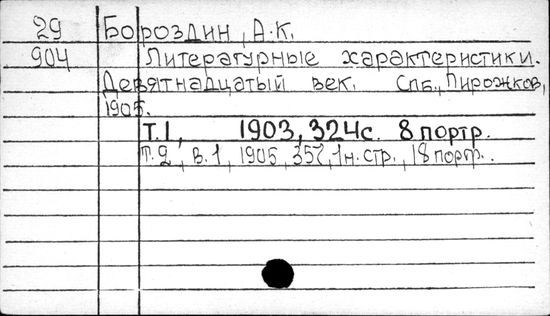 29 Бороздин, А.К.
904 Литературные характеристики.
Девятнадцатый век. Спб., Пирожков,
1905.
Т.1, 1903, 324с. 8 портр.
Т.2, в.1, 1905, 357, 1н.стр., 18 портр.